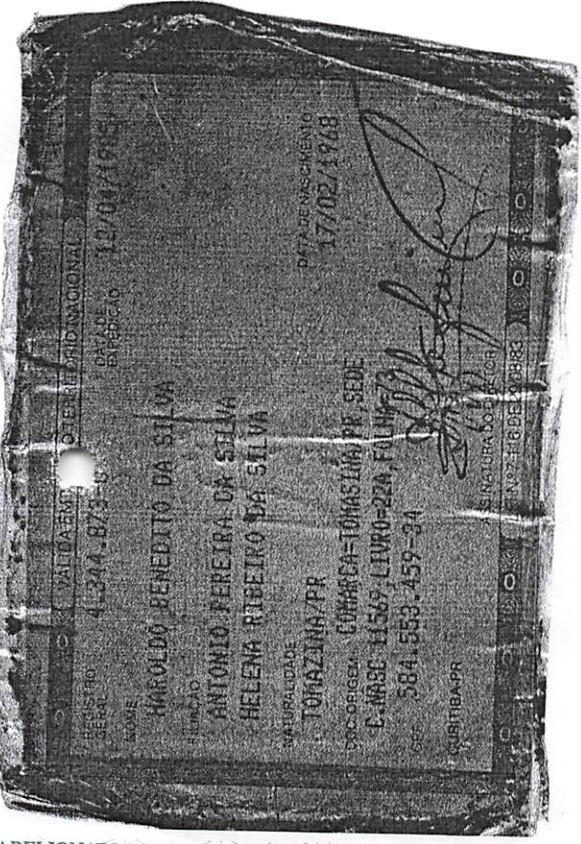 VÁLIDA EM TODO O TERRITÓRIO NACIONAL
REGISTRO GERAL 4.344.873- DATA DE EXPEDIÇÃO 12/04/
NOME
HAROLDO BENEDITO DA SILVA
FILIAÇÃO
ANTONIO PEREIRA DA SILVA
HELENA RIBEIRO DA SILVA
NATURALIDADE DATA DE NASCIMENTO
TOMAZINA/PR 17/02/1968
DOC ORIGEM COMARCA=TOMASINA/PR, SEDE
C.NASC 11569, LIVRO=22A, FOLHA=
584.553.459-34
CPF
CURITIBA-PR
ASSINATURA DO DIRETOR
LEI Nº 7.116 DE 29/08/83